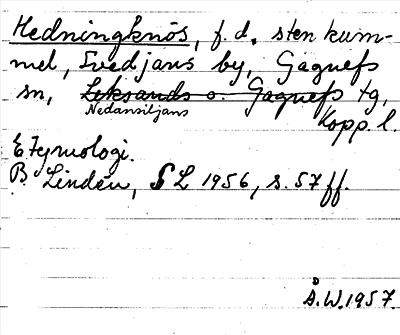 Hedningknös, f.d. sten kum-
mel, Svedjans by, Gagnefs
sn, Leksands o. Gagnefs tg,
Nedansiljans
Kopp. l.
Etymologi.
B. Lindén, SL 1956, s. 57 ff.
Å.W. 1957.